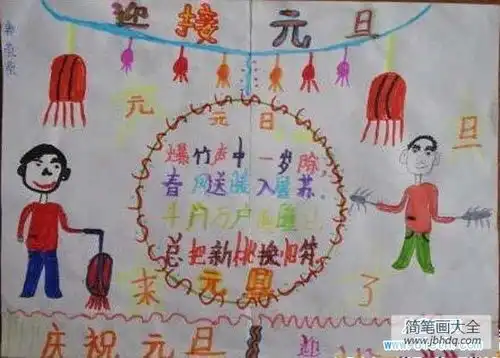 迎接元旦
元
元日
旦
爆竹声中一岁除，
春风送暖入屠苏。
千门万户
总把新桃换旧符
来 元旦 了
庆祝元旦
迎
简笔画大全
www.jbhdq.com